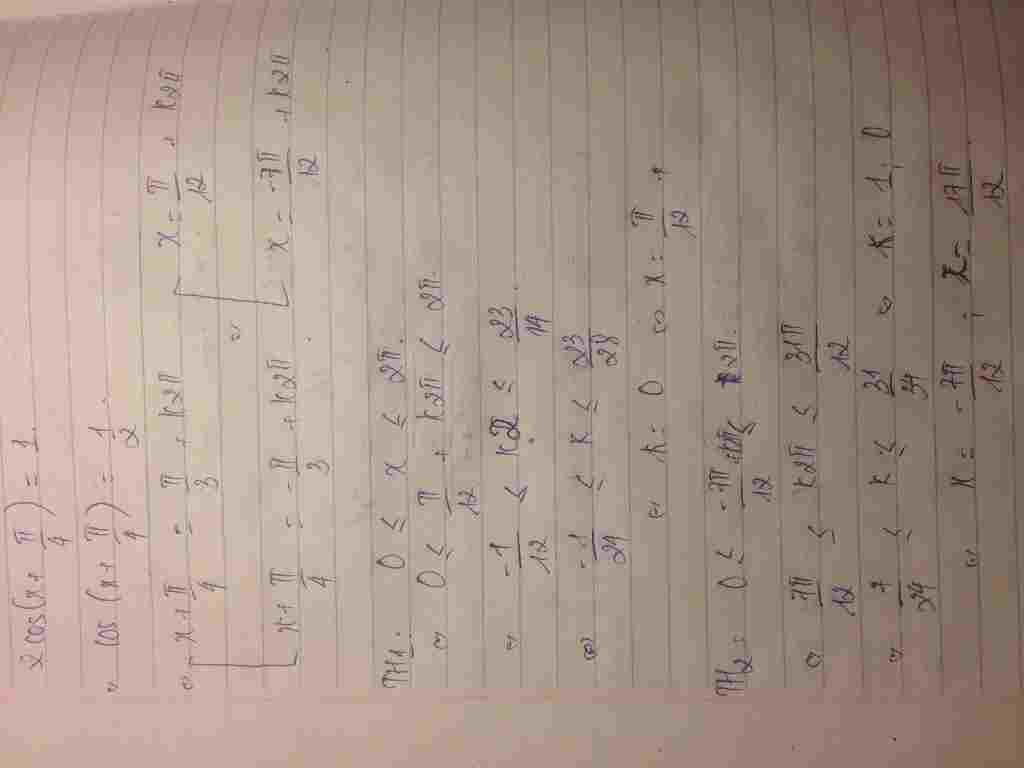 2cos(x+π/4) = 1.
⇔ cos(x+π/4) = 1/2.
⇔ [ x+π/4 = π/3 + k2π
x+π/4 = -π/3 + k2π.
⇔ [ x = π/12 + k2π
x = -7π/12 + k2π
TH1. 0 ≤ x ≤ 2π.
⇔ 0 ≤ π/12 + k2π ≤ 2π.
⇔ -1/12 ≤ k2 ≤ 23/12
⇔ -1/24 ≤ k ≤ 23/24
⇔ k = 0 ⇔ x = π/12
TH2: 0 ≤ -7π/12 + k2π ≤ 2π.
⇔ 7π/12 ≤ k2π ≤ 31π/12
⇔ 7/24 ≤ k ≤ 31/24 ⇔ k = 1, 0
⇔ x = -7π/12 ; x = 17π/12